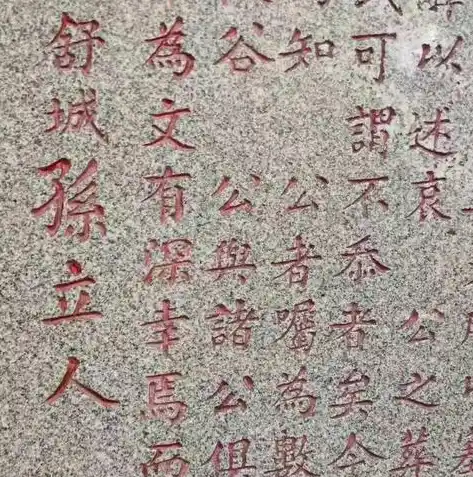 以述哀 公之葬
可謂不忝者矣今
知 公者囑為數
谷 公與諸公俱
為文有深幸焉而
舒城孫立人